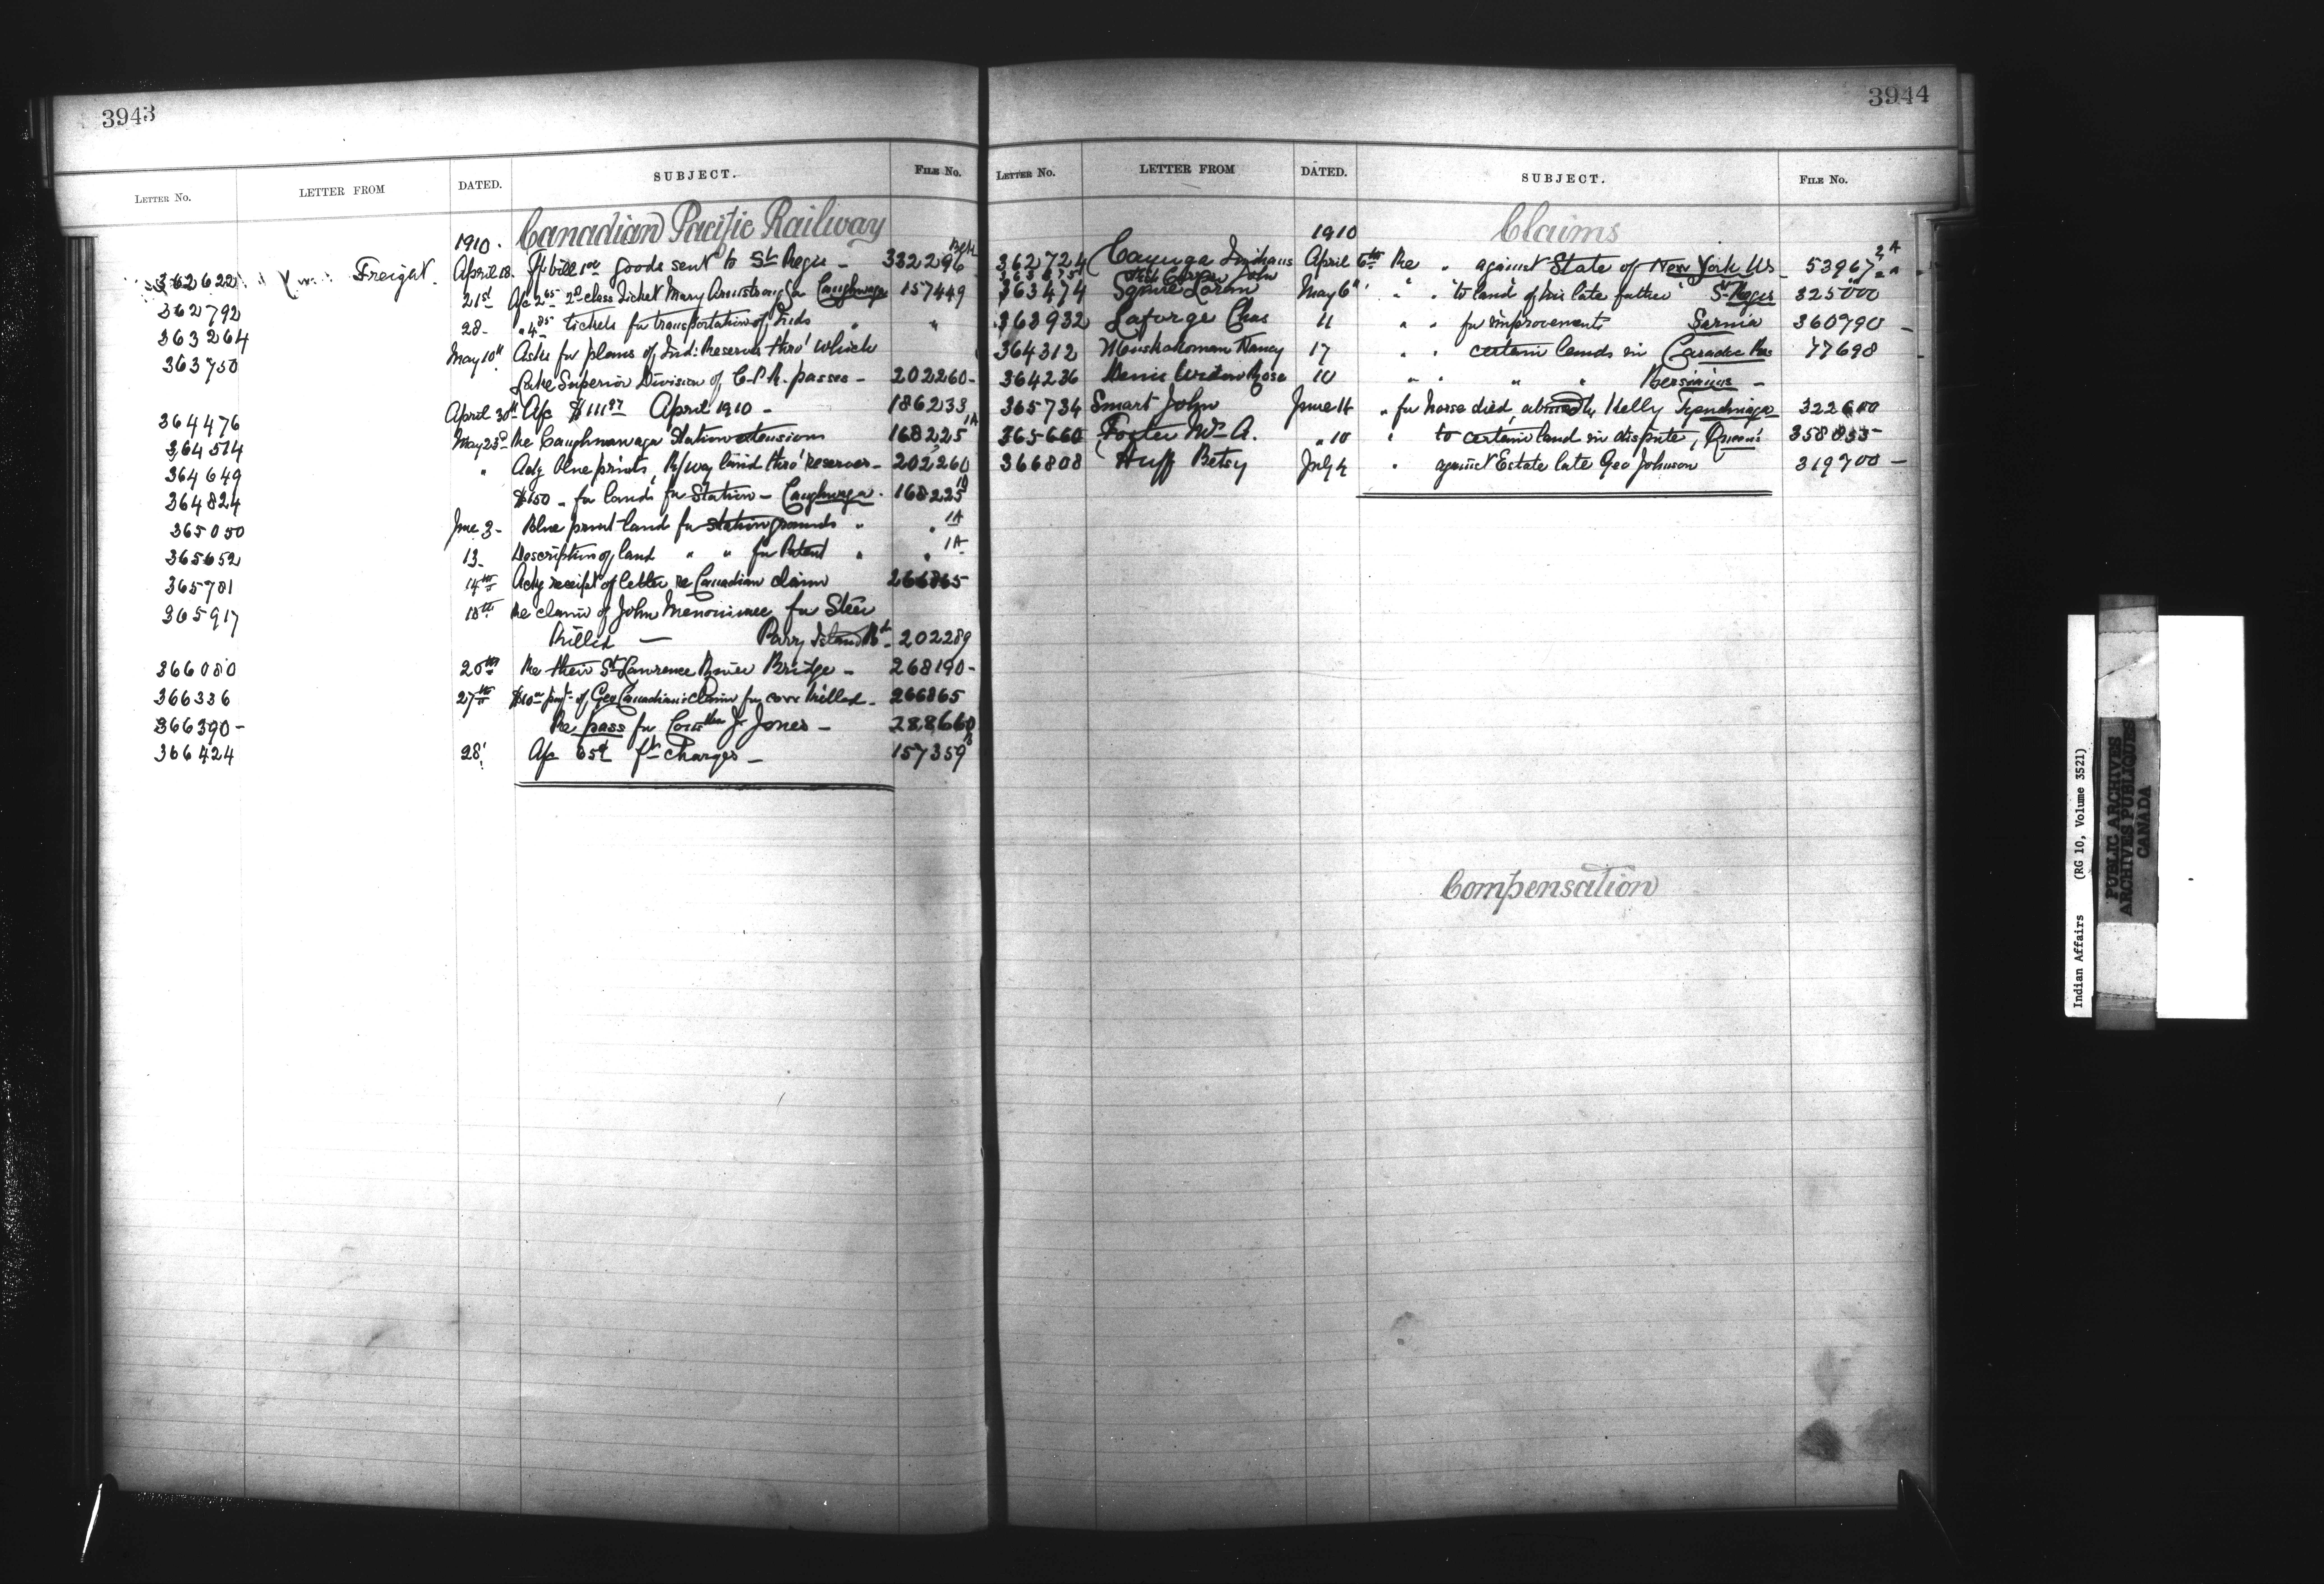 3943
LETTER NO. LETTER FROM DATED. SUBJECT. FILE NO.
1910. Canadian Pacific Railway
362622 Freight. April 18. bill goods sent to St Regis - 332296
362792 21st A/c 2.65 2d class Ticket Mary Armstrong Caughnwga 157449
363264 28- " 4.85 tickets for transportation of Inds " "
363750 May 10th Asks for plans of Ind: Reserves thro' which
Lake Superior Division of C.P.R. passes - 202260-
364476 April 30th A/c $111.97 April 1910 - 186233
364514 May 23d Re Caughnawaga Station extensions 168225 1A
364649 " Ackg blue prints, R/way land thro' reserves - 202260
364824 $150 " for land for Station - Caughnwga. 168225
365050 June 3- Blue print land for station grounds " " 1A
365652 13- Description of land " " for Patent " " 1A
365781 14th Ackg receipt of letter re Canadian claim 266865
365917 18th Re claim of John Menominee for Steer
Killed — Parry Island 202289
366080 20th Re their St Lawrence River Bridge - 268190-
366336 27th of Geo Canadian's claim for cow killed - 266865
366390- Re pass for J. Jones - 288660
366424 28' A/c 65¢ ft Charges - 157359
3944
LETTER NO. LETTER FROM DATED. SUBJECT. FILE NO.
1910 Claims
362724 Cayuga Indians April 6th Re " against State of New York U.S. 53967
363474 Squire Loran May 6th " " to land of his late father St Regis 325000
363932 Laforge Chas 11 " " for improvements Sarnia 360790 -
364312 Muskakoman Nancy 17 " " certain lands in Caradoc Res 77698
364236 Denis Widow Rose 10 " " " " Bersimis -
365734 Smart John June 14 " for horse died, Kelly Tyendinaga 322600
365660 Foster Wm A. " 10 " to certain land in dispute, 358855
366808 Huff Betsy July 4 " against Estate late Geo Johnson 319700 -
Compensation
Indian Affairs (RG 10, Volume 3521)
PUBLIC ARCHIVES
ARCHIVES PUBLIQUES
CANADA